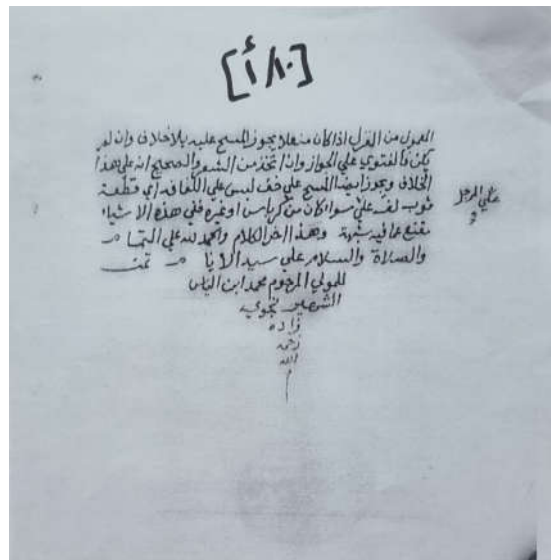 [١٠/أ]
المعمول من الغزل اذا كان منعلا يجوز المسح عليه بلا خلاف وان لم
يكن فالفتوي علي الجواز وان اتخذ من الشعر والصحيح انه علي هذا
الخلاف ويجوز ايضا المسح علي خف لبس علي اللفافه اي قطعة
ثوب لف علي سوا كان من كرباس او غيره ففي هذه الاشياء
علي الرجل
يقنع عما فيه شبهة وهذا اخر الكلام والحمد لله علي التمام
والصلاة والسلام علي سيد الانام تمت
للمولي المرحوم محمد ابن الياس
الشهير بجوي
زاده
رحمه
الله
م